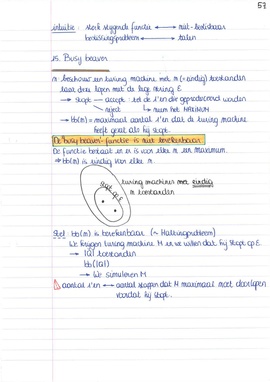 57
intuïtie: sterk stijgende functie ↔ niet-beslisbaar
beslissingsprobleem ↔ talen
15. Busy beaver
m: beschouw een turing machine met m (=eindig) toestanden
laat deze lopen met de lege string ε
→ stopt — accept: tel de 1'en die geproduceerd worden
reject ↳ neem het MAXIMUM
→ bb(m) = maximaal aantal 1'en dat de turing machine
heeft gezet als hij stopt.
De 'busy beaver'-functie is niet berekenbaar
De functie bestaat en er is voor elke m een maximum.
⇒ bb(m) is eindig voor elke m.
turing machines met eindig
m toestanden
stopt op ε
Stel: bb(m) is berekenbaar (~ Haltingprobleem)
We krijgen turing machine M en we willen dat hij stopt op ε
→ |Q| toestanden
bb(|Q|)
→ We simuleren M
⚠ aantal 1'en ↔ aantal stappen dat M maximaal moet doorlopen
voordat hij stopt.